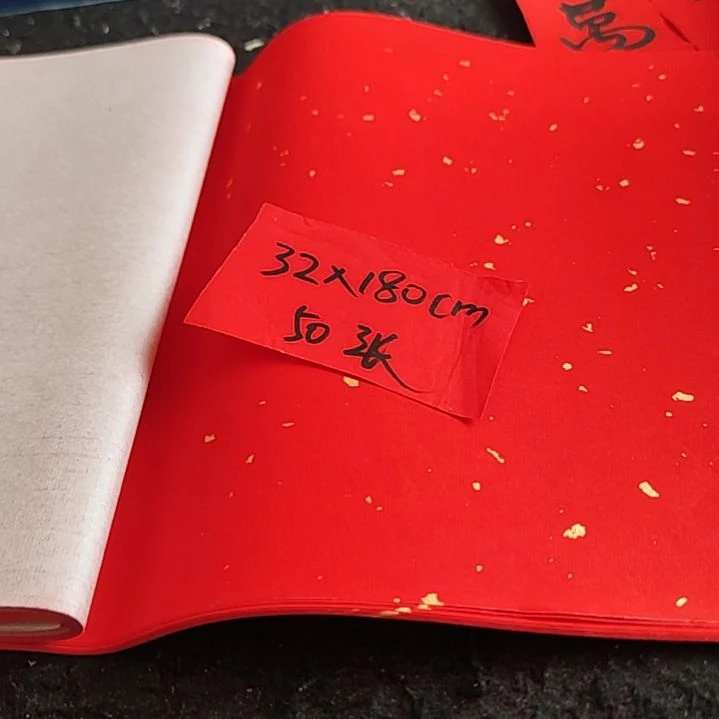 萬
32×180cm
50张